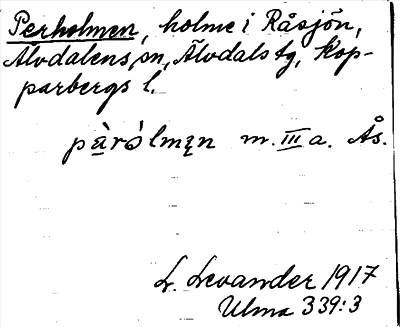 Perholmen, holme i Råsjön,
Älvdalens sn, Älvdals tg, Kop-
parbergs l.
pàrólmęn m. III a. Ås.
L. Levander 1917
Ulma 339:3